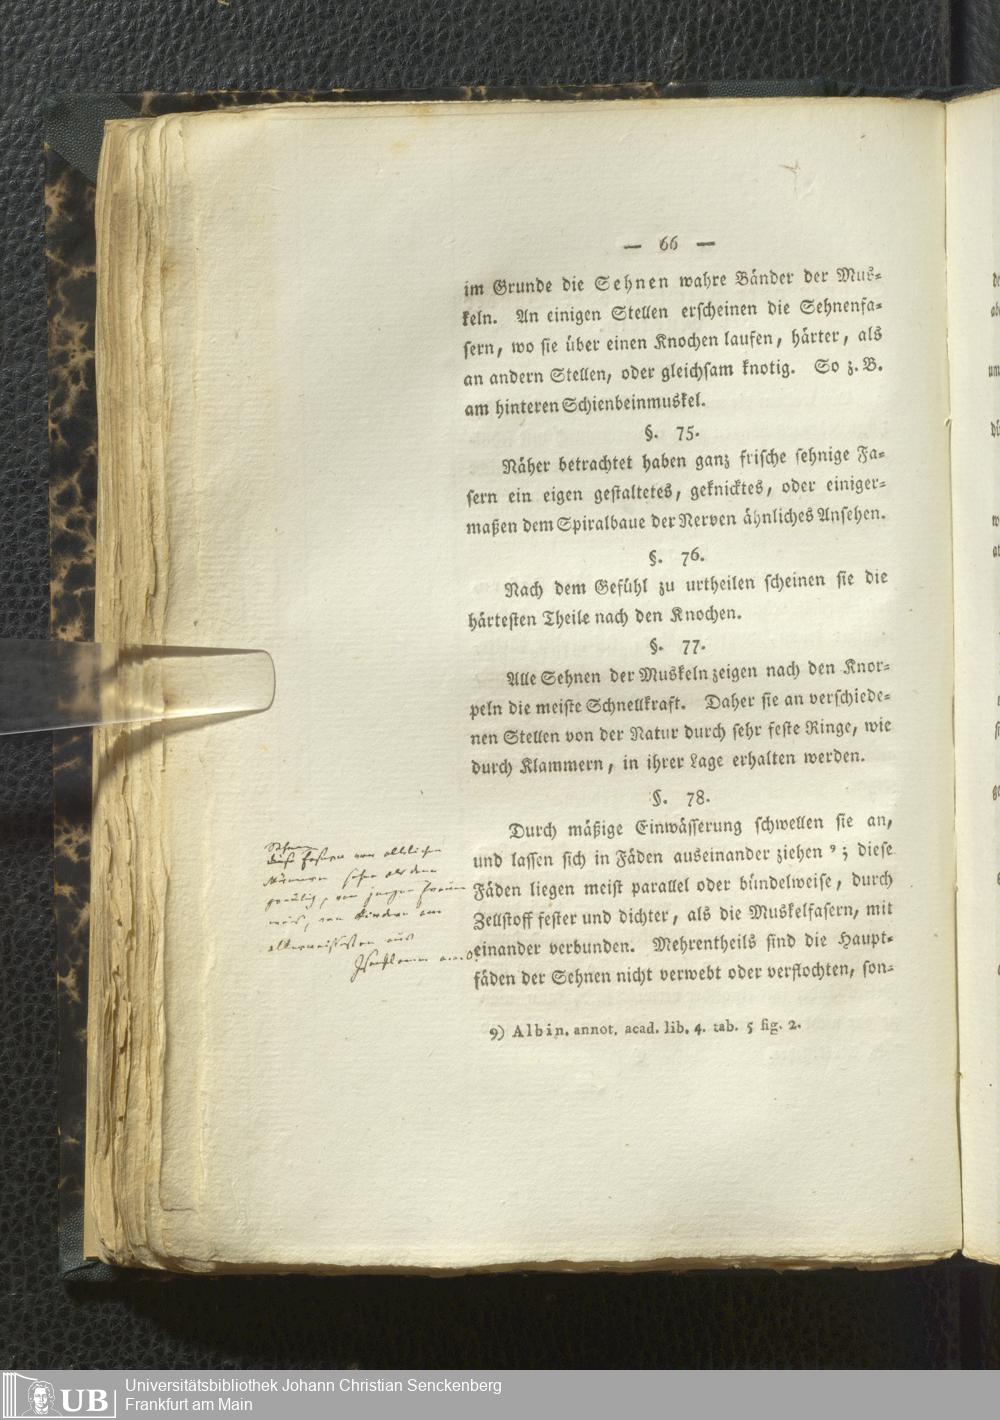 — 66 —
im Grunde die Sehnen wahre Bänder der Mus-
keln. An einigen Stellen erscheinen die Sehnenfa-
sern, wo sie über einen Knochen laufen, härter, als
an andern Stellen, oder gleichsam knotig. So z. B.
am hinteren Schienbeinmuskel.
§. 75.
Näher betrachtet haben ganz frische sehnige Fa-
sern ein eigen gestaltetes, geknicktes, oder einiger-
maßen dem Spiralbaue der Nerven ähnliches Ansehen.
§. 76.
Nach dem Gefühl zu urtheilen scheinen sie die
härtesten Theile nach den Knochen.
§. 77.
Alle Sehnen der Muskeln zeigen nach den Knor-
peln die meiste Schnellkraft. Daher sie an verschiede-
nen Stellen von der Natur durch sehr feste Ringe, wie
durch Klammern, in ihrer Lage erhalten werden.
§. 78.
Durch mäßige Einwässerung schwellen sie an,
und lassen sich in Fäden auseinander ziehen ⁹; diese
Fäden liegen meist parallel oder bündelweise, durch
Zellstoff fester und dichter, als die Muskelfasern, mit
einander verbunden. Mehrentheils sind die Haupt-
fäden der Sehnen nicht verwebt oder verflochten, son-
9) Albin. annot. acad. lib. 4. tab. 5 fig. 2.
von
von jungen
von Kindern am
aus
UB
Universitätsbibliothek Johann Christian Senckenberg
Frankfurt am Main